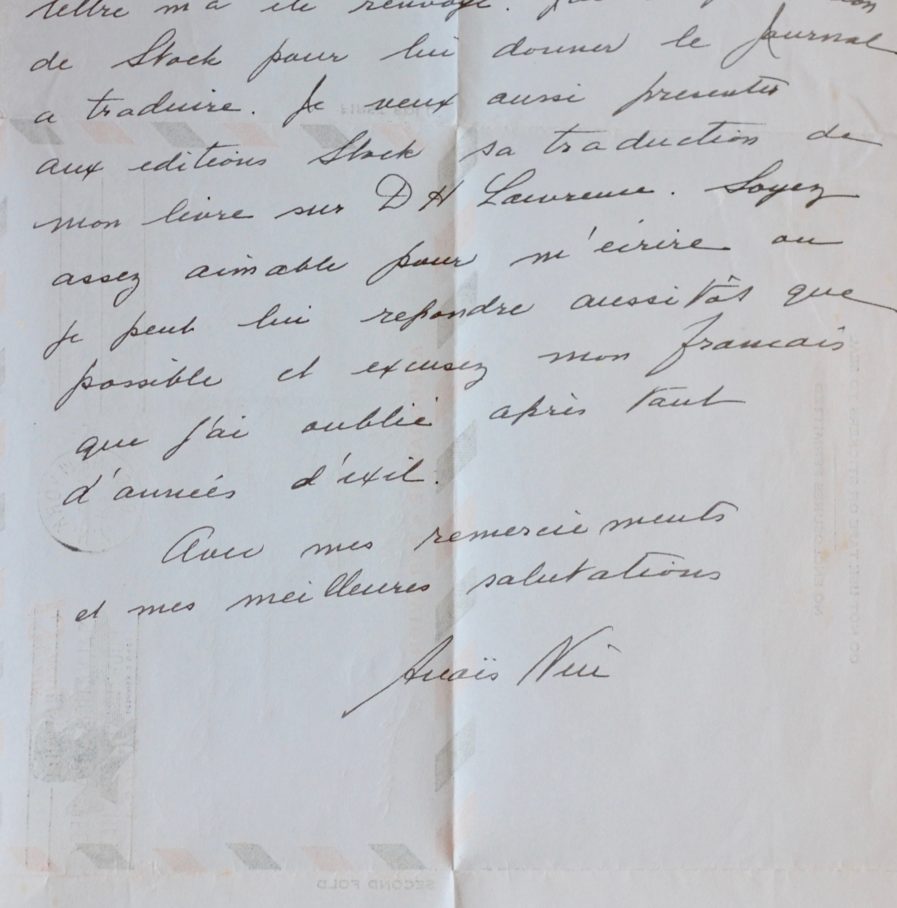 lettre m'a été renvoyé.
de Stock pour lui donner le Journal
a traduire. Je veux aussi presenter
aux editions Stock sa traduction de
mon livre sur D H Lawrence. Soyez
assez aimable pour m'écrire ou
je peut lui repondre aussitôt que
possible et excusez mon francais
que j'ai oublié après tant
d'annés d'exil.
Avec mes remerciements
et mes meilleures salutations
Anaïs Nin
SECOND FOLD